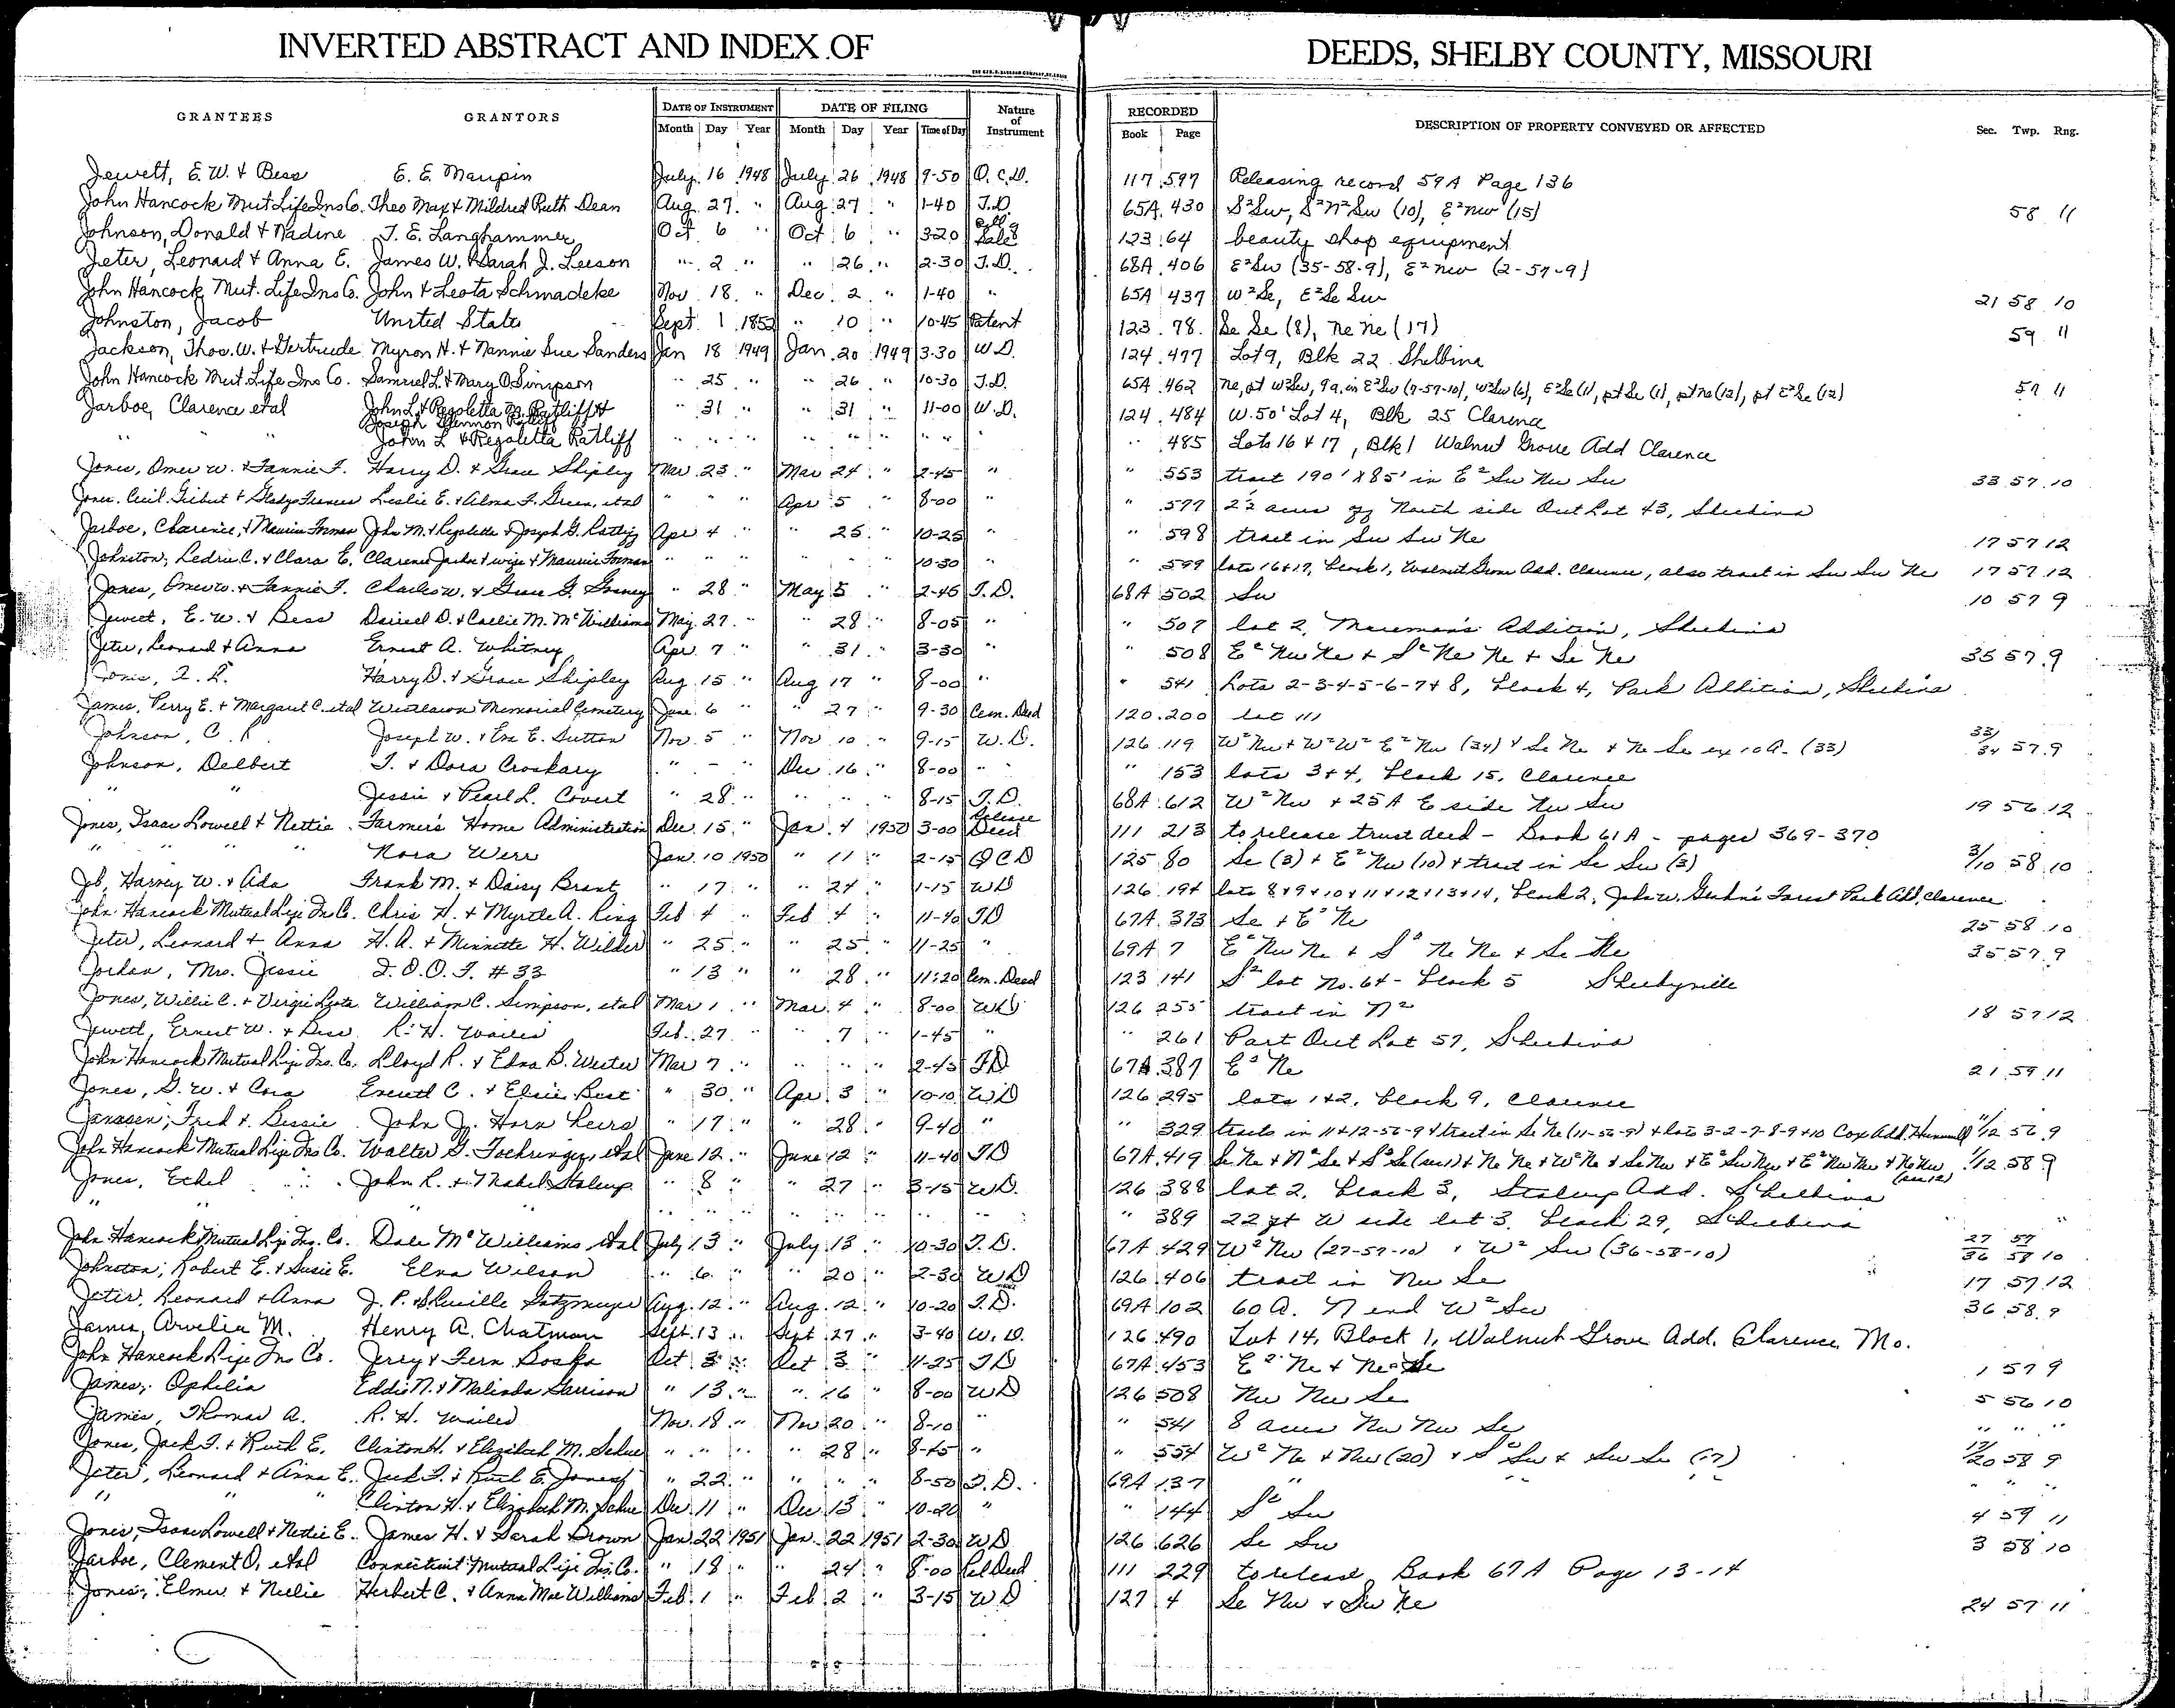 INVERTED ABSTRACT AND INDEX OF DEEDS, SHELBY COUNTY, MISSOURI
GRANTEES GRANTORS DATE OF INSTRUMENT DATE OF FILING Nature of Instrument RECORDED DESCRIPTION OF PROPERTY CONVEYED OR AFFECTED Sec. Twp. Rng.
Month Day Year Month Day Year Time of Day Book Page
Jewett, E. W. & Bess E. E. Maupin July 16 1948 July 26 1948 9-50 Q. C. D. 117 597 Releasing record 59A Page 136
John Hancock Mut Life Ins Co. Theo Max & Mildred Ruth Dean Aug 27 " Aug 27 " 1-40 T.D. 65A 430 S²Sw, S²N²Sw (10), E²nw (15) 58 11
Johnson, Donald & Nadine T. E. Langhammer Oct 6 " Oct 6 " 3-20 Bill of Sale 123 64 beauty shop equipment
Jeter, Leonard & Anna E. James W. & Sarah J. Leeson " 2 " " 26 " 2-30 T.D. 68A 406 E²Sw (35-58-9), E²nw (2-57-9)
John Hancock Mut. Life Ins Co. John & Leota Schmadeke Nov 18 " Dec 2 " 1-40 " 65A 437 W²Se, E²Se Sw 21 58 10
Johnston, Jacob United States Sept 1 1852 " 10 " 10-45 Patent 123 78 Se Se (8), ne ne (17) 59 11
Jackson, Thos. W. & Gertrude Myron H. & Nannie Sue Sanders Jan 18 1949 Jan 20 1949 3-30 W D. 124 477 Lot 9, Blk 22 Shelbina
John Hancock Mut. Life Ins Co. Samuel L. & Mary O Simpson " 25 " " 26 " 10-30 T.D. 65A 462 ne, pt W²Sw, 9a. in E²Sw (7-57-10), W²Sw (6), E²Se (1), pt Se (1), pt ne (12), pt E²Se (12) 57 11
Jarboe, Clarence etal John L & Regoletta M. Ratliff & Joseph Glennon Ratliff " 31 " " 31 " 11-00 W.D. 124 484 W. 50' Lot 4, Blk 25 Clarence
" " John L & Regoletta Ratliff " " " " " " " " " 485 Lots 16 & 17, Blk 1 Walnut Grove Add Clarence
Jones, Omer W. & Fannie F. Harry D. & Grace Shipley Mar 23 " Mar 24 " 2-45 " " 553 tract 190' X 85' in E² Sw Nw Sw 33 57 10
Jones, Cecil Gilbert & Gladys Frances Leslie E. & Alma F. Green, etal " " " Apr 5 " 8-00 " " 577 2½ acres off North side Out Lot 43, Shelbina
Jarboe, Clarence, & Maurice Forman John M. & Regoletta & Joseph G. Ratliff Apr 4 " " 25 " 10-25 " " 598 tract in Sw Sw Ne 17 57 12
Johnston, Ledru C. & Clara E. Clarence Jarboe & wife & Maurice Forman " " " " " " 10-30 " " 599 lots 16 & 17, block 1, Walnut Grove Add. Clarence, also tract in Sw Sw Ne 17 57 12
Jones, Omer W. & Fannie F. Charles W. & Grace G. " 28 " May 5 " 2-45 T.D. 68A 502 Sw 10 57 9
Jewett, E. W. & Bess Daniel D. & Callie M. McWilliams May 27 " " 28 " 8-05 " " 507 lot 2, Addition, Shelbina
Jeter, Leonard & Anna Ernest A. Whitney Apr 7 " " 31 " 3-30 " " 508 E² Nw Ne & S² Ne Ne & Se Ne 35 57 9
Harry D. & Grace Shipley Aug 15 " Aug 17 " 8-00 " " 541 Lots 2-3-4-5-6-7 & 8, block 4, Park Addition, Shelbina
James, Perry E. & Margaret C. etal Westlawn Memorial Cemetery June 6 " " 27 " 9-30 Cem. Deed 120 200 lot 111
Johnson, C. R. Joseph W. & Eva E. Sutton Nov. 5 " Nov 10 " 9-15 W.D. 126 119 W² Nw & W² W² E² Nw (34) & Se Ne & Ne Se ex 10 A. (33) 33/34 57 9
Johnson, Delbert T. & Dora Croskary " - " Dec 16 " 8-00 " " 153 lots 3 & 4, block 15, Clarence
" " Jessie & Pearl L. Covert " 28 " " " " 8-15 T.D. 68A 612 W² Nw & 25A E side Nw Sw 19 56 12
Jones, Isaac Lowell & Nettie Farmer's Home Administration Dec. 15 " Jan. 4 1950 3-00 Release Deed 111 213 to release trust deed - Book 61A - pages 369-370
" " " " Nora Werr Jan. 10 1950 " 11 " 2-15 Q C D 125 80 Se (3) & E² Nw (10) & tract in Se Sw (3) 3/10 58 10
Job, Harvey W. & Ada Frank M. & Daisy Brant " 17 " " 24 " 1-15 WD 126 194 lots 8 & 9 & 10 & 11 & 12 & 13 & 14, block 2, John W. Forest Park Add, Clarence
John Hancock Mutual Life Ins Co. Chris H. & Myrtle A. King Feb 4 " Feb 4 " 11-40 TD 67A 373 Se & E² Ne 25 58 10
Jeter, Leonard & Anna H. A. & Minnette H. Wilder " 25 " " 25 " 11-25 " 69A 7 E² Nw Ne & S² Ne Ne & Se Ne 35 57 9
Jordan, Mrs. Jessie I. O. O. F. #33 " 13 " " 28 " 11:20 Cem. Deed 123 141 S² lot No. 64 - block 5 Shelbyville
Jones, Willie C. & Virgie Leota William C. Simpson, etal Mar 1 " Mar. 4 " 8-00 WD 126 255 tract in N² 18 57 12
Jewett, Ernest W. & Bess R. H. Wailes Feb. 27 " " 7 " 1-45 " " 261 Part Out Lot 57, Shelbina
John Hancock Mutual Life Ins. Co. Lloyd R. & Edna B. Wester Mar 7 " " " " 2-45 TD 67A 387 E² Ne 21 59 11
Jones, G. W. & Cora Everett C. & Elsie Best " 30 " Apr 3 " 10-10 WD 126 295 lots 1 & 2, block 9, Clarence
Janssen, Fred & Bessie John J. Horn heirs " 17 " " 28 " 9-40 " " 329 tracts in 11 & 12-56-9 & tract in Se Ne (11-56-9) & lots 3-2-7-8-9 & 10 Cox Add. Hunnewell 11/12 56 9
John Hancock Mutual Life Ins Co. Walter G. etal June 12 " June 12 " 11-40 TD 67A 419 Se Ne & N² Se & S² Se (sec 1) & Ne Ne & W² Ne & Se Nw & E² Sw Nw & E² Nw Nw & Ne Nw (sec 12) 1/12 58 9
Jones, Echel John R. & Mabel Stalcup " 8 " " 27 " 3-15 WD. 126 388 lot 2, block 3, Stalcup Add. Shelbina
" " " " " " " " " " " " " 389 22 ft W side lot 3, block 29, Shelbina
John Hancock Mutual Life Ins. Co. Dale McWilliams etal July 13 " July 13 " 10-30 T.D. 67A 429 W² Nw (27-57-10) & W² Sw (36-58-10) 27 57 36 58 10
Johnston, Robert E. & Susie E. Elva Wilson " 6 " " 20 " 2-30 WD 126 406 tract in Nw Se 17 57 12
Jeter, Leonard & Anna J. P. & Lucille Aug. 12 " Aug. 12 " 10-20 T.D. 69A 102 60 A. N end W² Sw 36 58 9
James, Arvelia M. Henry A. Chatman Sept. 13 " Sept 27 " 3-40 W. D. 126 490 Lot 14, Block 1, Walnut Grove Add. Clarence Mo.
John Hancock Life Ins Co. Jerry & Fern Boska Oct 3 " Oct 3 " 11-25 TD 67A 453 E² Ne & Ne Se 1 57 9
James, Ophilia Eddie N. & Malinda Garrison " 13 " " 16 " 8-00 WD 126 508 Nw Nw Se 5 56 10
James, Thomas A. R. H. Wailes Nov. 18 " Nov 20 " 8-10 " " 541 8 acres Nw Nw Se " " "
Jones, Jack F. & Ruth E. Clinton H. & Elizabeth M. " " " " 28 " 8-45 " " 554 W² Ne & Nw (20) & S² Sw & Sw Se (17) 17/20 58 9
Jeter, Leonard & Anna E. Jack F. & Ruth E. Jones " 22 " " " " 8-50 T.D. 69A 137 " " " " " "
" " " Clinton H. & Elizabeth M. Dec 11 " Dec 13 " 10-20 " " 144 S² Sw 4 59 11
Jones, Isaac Lowell & Nettie E. James H. & Sarah Brown Jan. 22 1951 Jan. 22 1951 2-30 WD 126 626 Se Sw 3 58 10
Jarboe, Clement O. etal Connecticut Mutual Life Ins. Co. " 18 " " 24 " 8-00 Rel Deed 111 229 to release Book 67A Page 13-14
Jones, Elmer & Nellie Herbert C. & Anna Mae Williams Feb. 1 " Feb 2 " 3-15 WD 127 4 Se Nw & Sw Ne 24 57 11